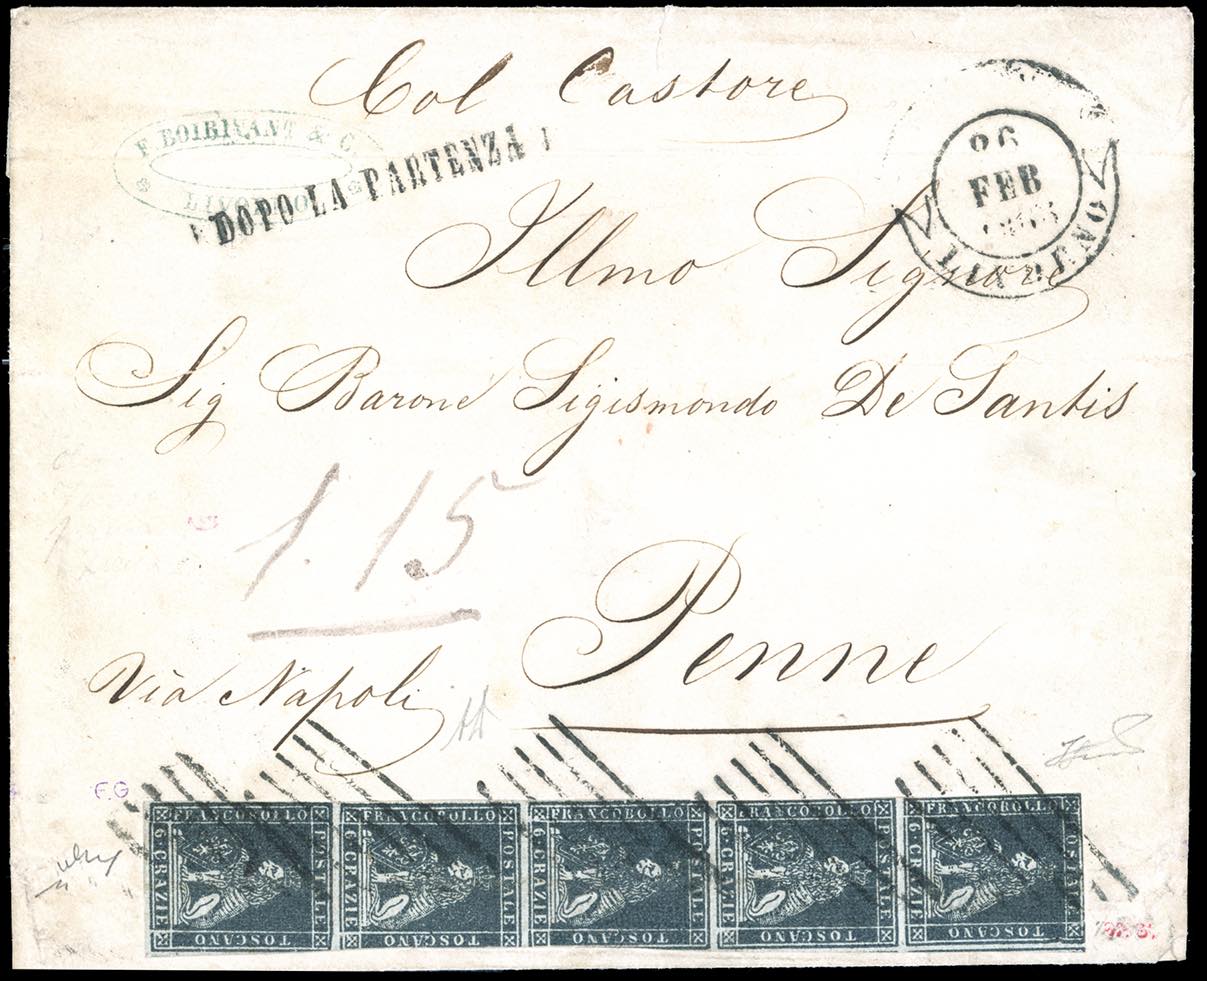 Col Castore
F. BOIBISANT & C.
LIVORNO
DOPO LA PARTENZA
26
FEB
LIVORNO
Illmo Signore
Sig Barone Sigismondo De Santis
1.15
Penne
Via Napoli
E.G
FRANCOBOLLO POSTALE TOSCANO 6 CRAZIE
FRANCOBOLLO POSTALE TOSCANO 6 CRAZIE
FRANCOBOLLO POSTALE TOSCANO 6 CRAZIE
FRANCOBOLLO POSTALE TOSCANO 6 CRAZIE
FRANCOBOLLO POSTALE TOSCANO 6 CRAZIE